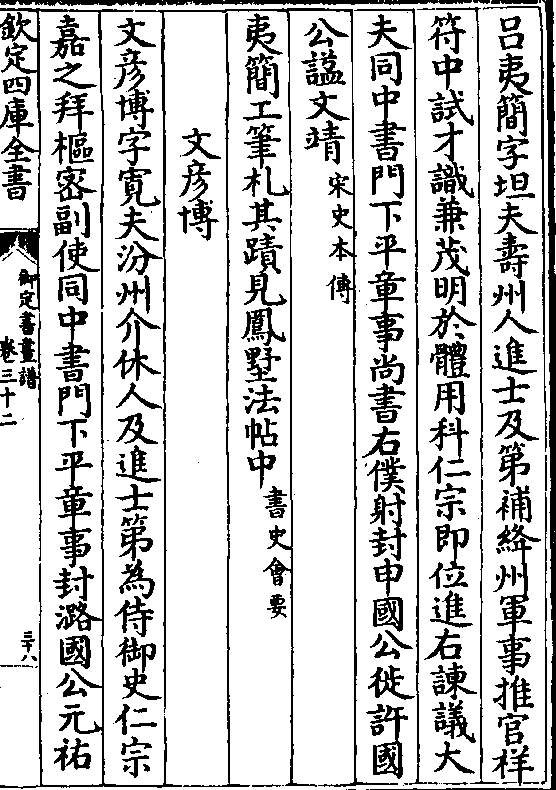 吕夷簡字坦夫壽州人進士及第補絳州軍事推官祥
符中試才識兼茂明於體用科仁宗即位進右諫議大
夫同中書門下平章事尚書右僕射封申國公徙許國
公諡文靖宋史本傳
夷簡工筆札其蹟見鳳墅法帖中書史會要
文彦博
文彦博字寛夫汾州介休人及進士第為侍御史仁宗
嘉之拜樞密副使同中書門下平章事封潞國公元祐
欽定四庫全書
御定書畫譜
卷三十二
三十八